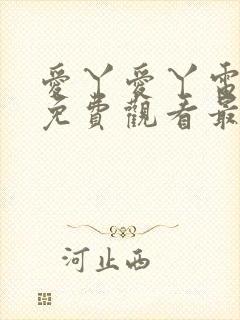 愛丫愛丫電
免費觀看最
河止西